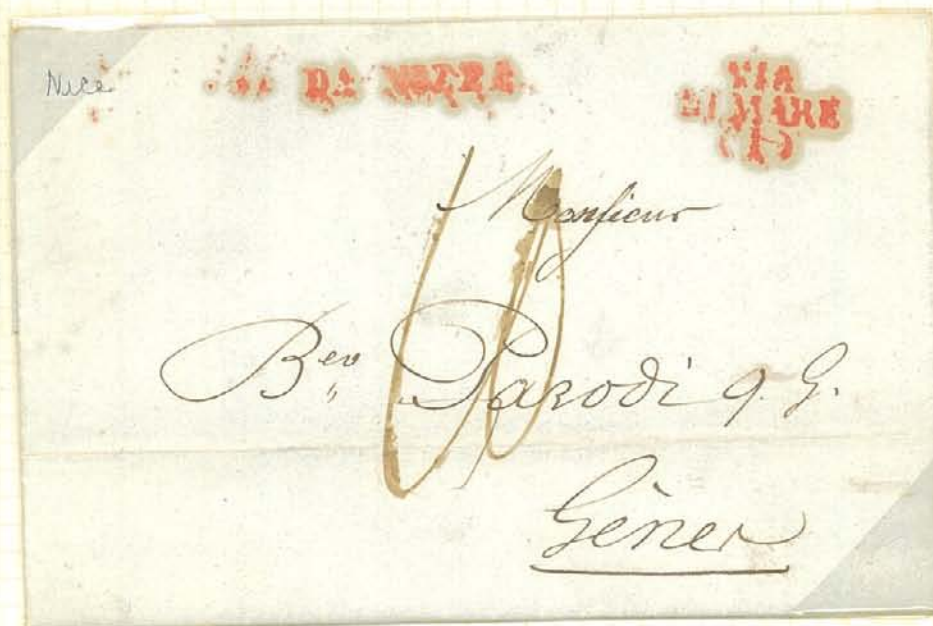 Nice
DA NIZZA
VIA
DI MARE
(I)
Monsieur
Beo Parodi q. G.
Gênes